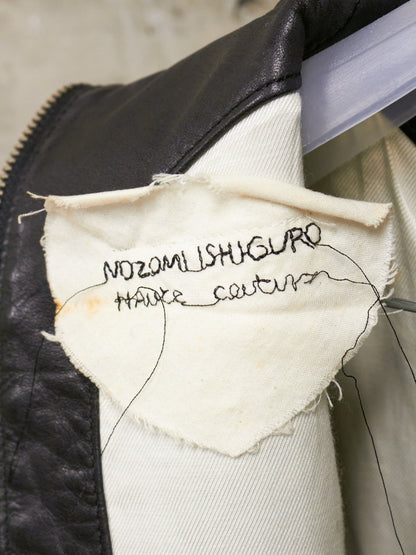 NOZOMI ISHIGURO
HAUTE couture